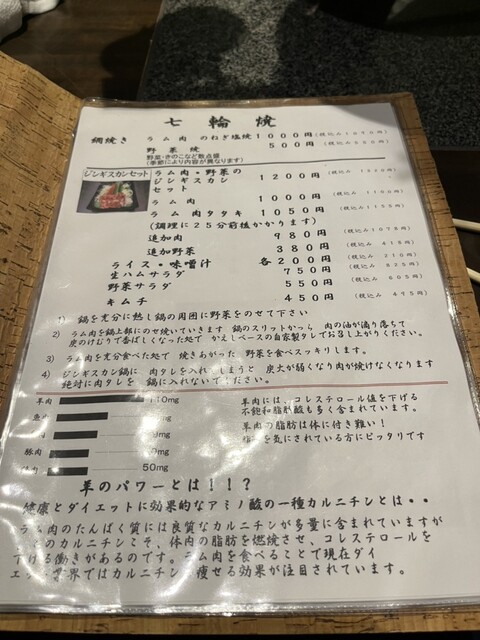 七輪焼
網焼き ラム肉 のねぎ塩焼 1000円
野菜焼 500円
野菜・きのこなど数点盛
(季節により内容が異なります)
ジンギスカンセット ラム肉・野菜の
ジンギスカン
セット 1200円
ラム肉 1000円
ラム肉タタキ 1050円
(調理に25分前後かかります)
追加肉 980円 (税込み 1078円
追加野菜 380円 (税込み 418円
ライス・味噌汁 各200円 (税込み 210円
生ハムサラダ 750円 (税込み 825円
野菜サラダ 550円 (税込み 605円
キムチ 450円 (税込み 495円
1) 鍋を充分に熱し鍋の周囲に野菜をのせて下さい
2) ラム肉を鍋上部にのせ焼いていきます 鍋のスリットから 肉の油が滴り落ちて
炭のけむりで香ばしくなった処で かえしベースの自家製タレでお召し上がりください。
3) ラム肉を充分食べた処で 焼きあがった 野菜を食べスッキリします。
4) ジンギスカン鍋に 肉タレを入れてしまうと 炭火が弱くなり肉が焼けなくなります
絶対に肉タレを 鍋に入れないで下さい。
羊肉
豚肉
50mg
羊肉には、コレステロール値を下げる
不飽和脂肪酸も多く含まれています。
羊肉の脂肪は体に付き難い!
を気にされている方にピッタリです
羊のパワーとは!!?
健康とダイエットに効果的なアミノ酸の一種カルニチンとは・・
ラム肉のたんぱく質には良質なカルニチンが多量に含まれていますが
のカルニチンこそ、体内の脂肪を燃焼させ、コレステロールを
下げる働きがあるのです。ラム肉を食べることで現在ダイ
エット業界ではカルニチンの痩せる効果が注目されています。